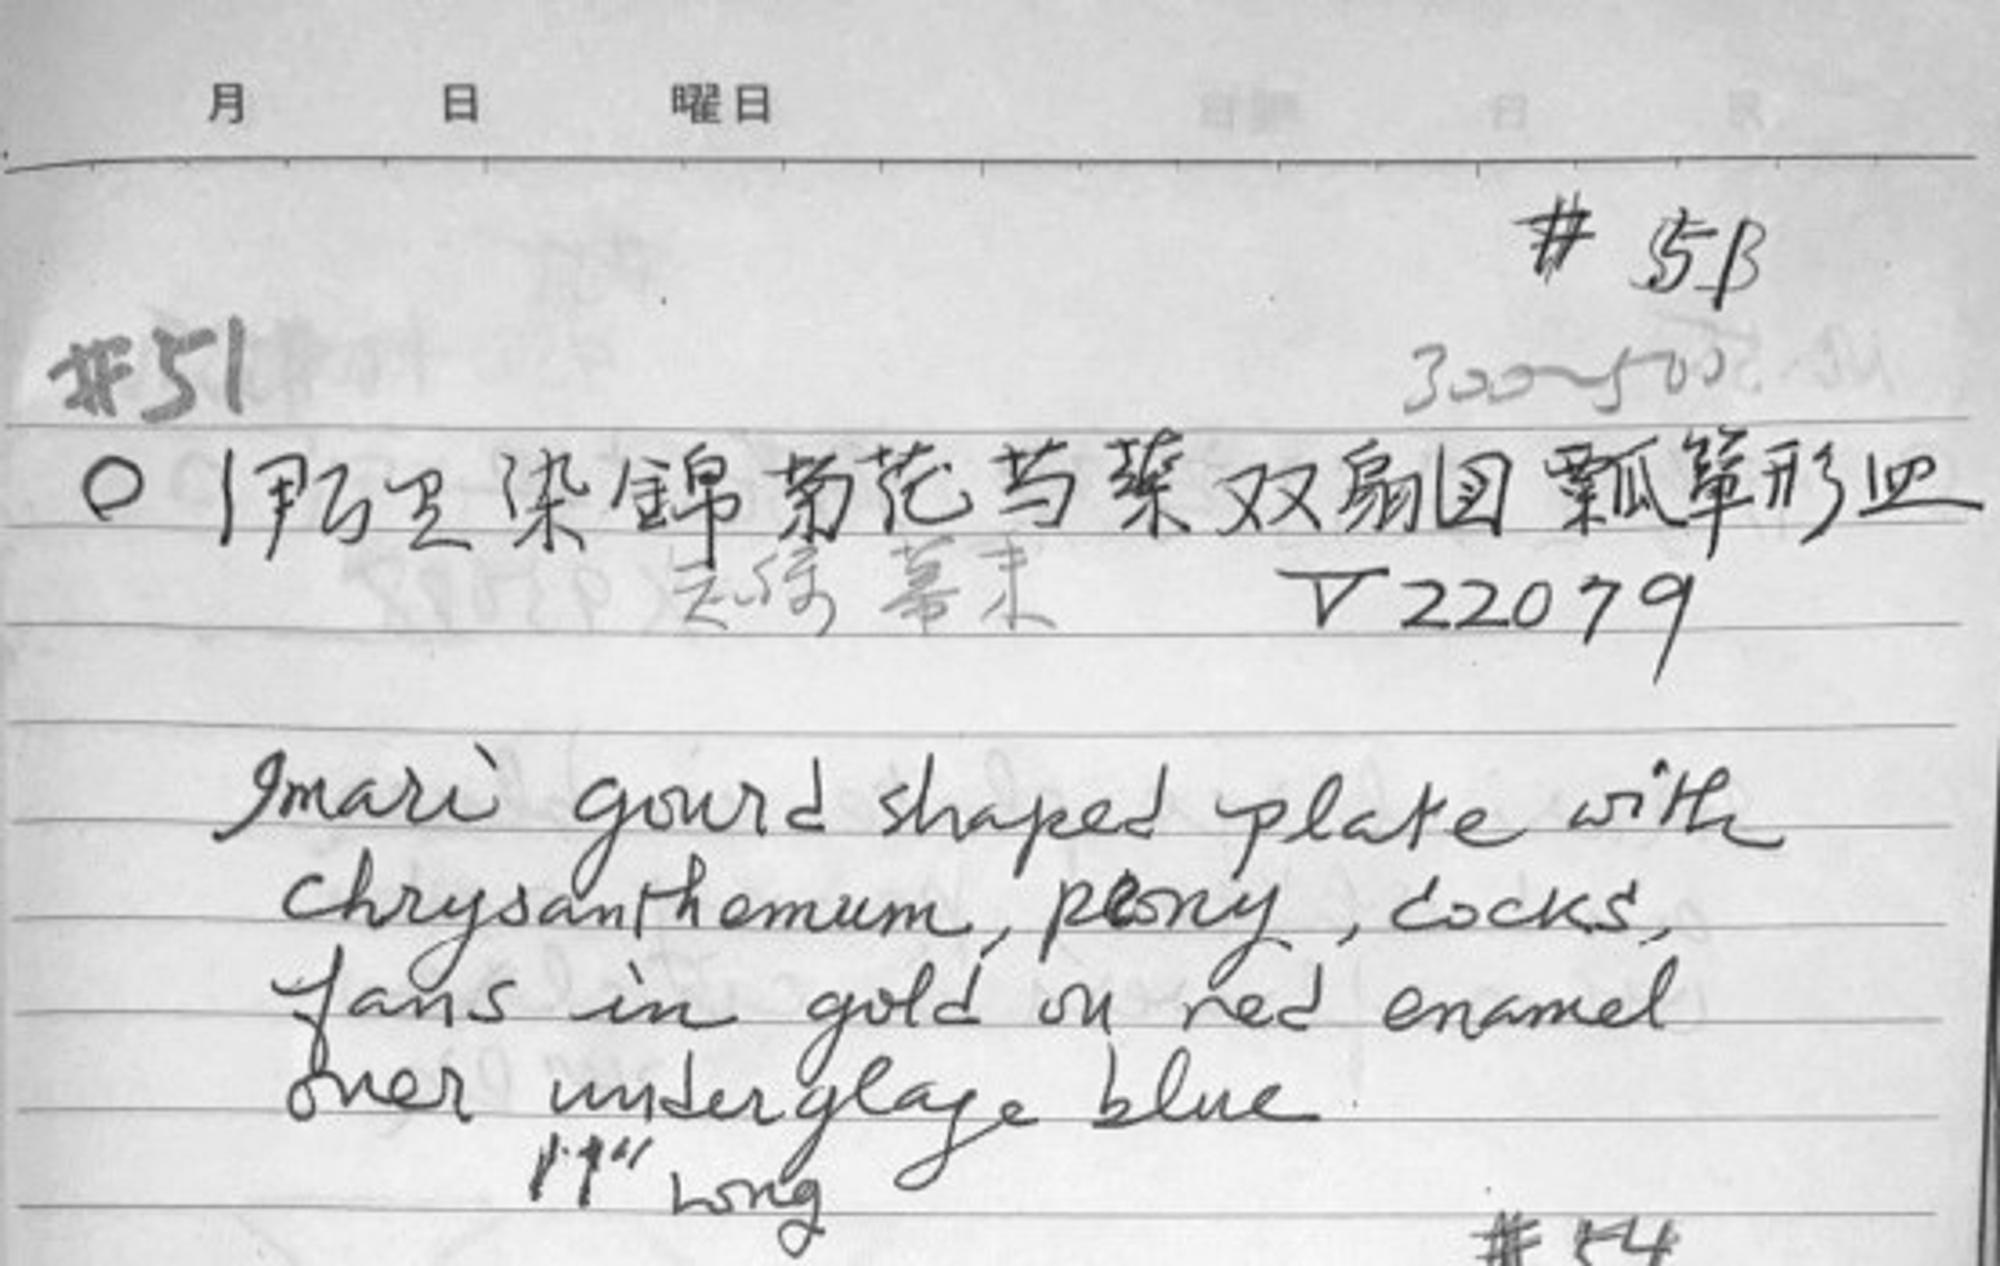 月 日 曜日
# 53
#51
300~500
○ 伊万里染錦菊花芍薬双扇図瓢箪形皿
幕末 V22079
Imari gourd shaped plate with
chrysanthemum, peony, cocks,
fans in gold on red enamel
over underglaze blue
Long
#54